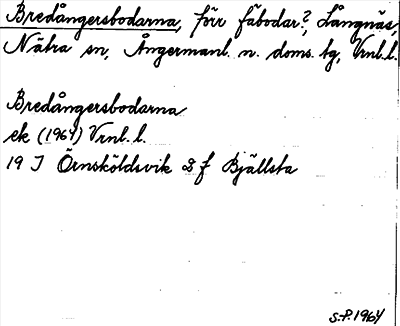 Bredångersbodarna, förr fäbodar?, Långnäs,
Nätra sn, Ångermanl. n. doms. tg, Vrnl. l.
Bredångersbodarna
ek (1964) Vrnl. l.
19 J Örnsköldsvik 8 f Bjällsta
S-P. 1964